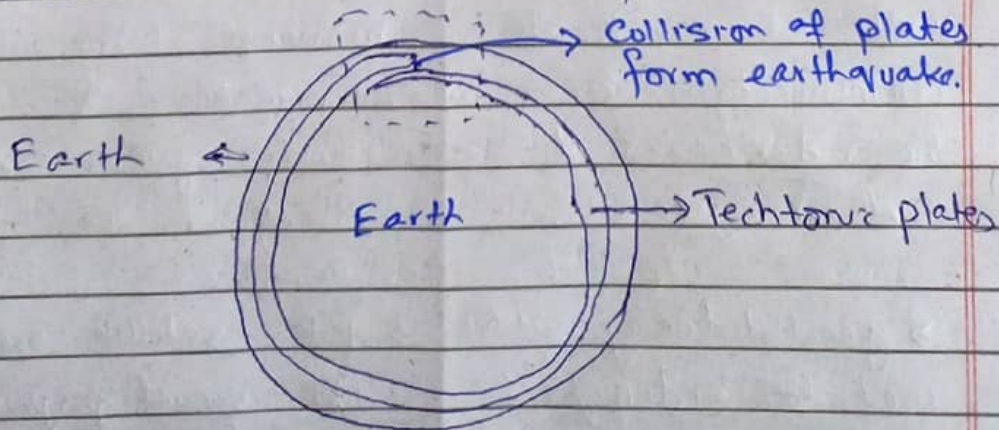 Collision of plates
form earthquake.
Earth
Earth
Techtonic plates